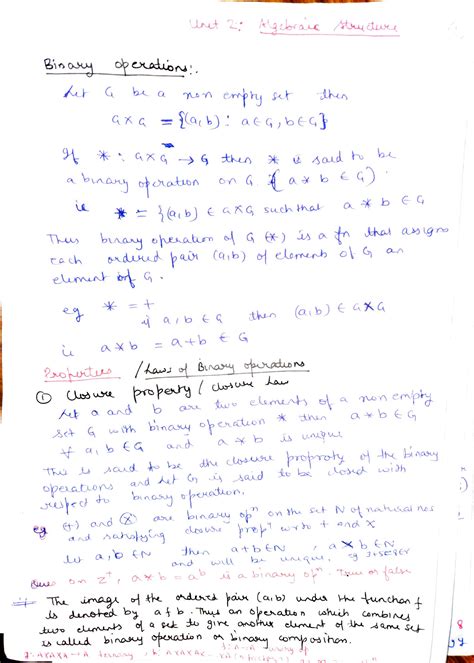 Unit 2: Algebraic structure
Binary operations:.
Let G be a non empty set then
G×G = {(a,b) : a∈G, b∈G}
If * : G×G → G then * is said to be
a binary operation on G (a * b ∈ G)
ie * = {(a,b) ∈ G×G such that a * b ∈ G
Thus binary operation of G (*) is a fn that assigns
each ordered pair (a,b) of elements of G an
element of G.
eg * = +
if a, b ∈ G then (a,b) ∈ G×G
ie a*b = a+b ∈ G
Properties / Laws of Binary operations
① Closure property / closure Law
Let a and b are two elements of a non empty
set G with binary operation * then a*b ∈ G
if a, b ∈ G and a * b is unique
This is said to be the closure property of the binary
operations and set G is said to be closed with
respect to binary operation.
eg (+) and ⊗ are binary opⁿ on the set N of natural nos
and satisfying closure propᵗ w.r.to + and ×
Let a, b ∈ N then a+b ∈ N, a×b ∈ N
and will be unique. eg
Ques on Z⁺, a*b = ab is a binary opⁿ. True or false
The image of the ordered pair (a,b) under the function f
is denoted by a f b. Thus an operation which combines
two elements of a set to give another element of the same set
is called binary operation or binary composition.
ternary